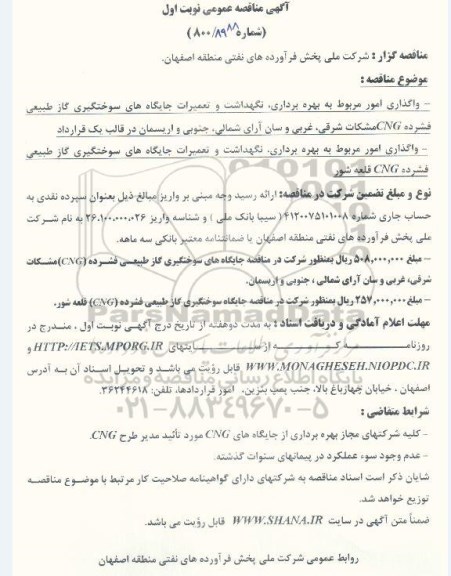 آگهی مناقصه عمومی نوبت اول
(شماره ۸۰۰/۸۹۸۸)
مناقصه گزار : شرکت ملی پخش فرآورده های نفتی منطقه اصفهان.
موضوع مناقصه :
– واگذاری امور مربوط به بهره برداری، نگهداشت و تعمیرات جایگاه های سوختگیری گاز طبیعی
فشرده CNGمشکات شرقی، غربی و سان آرای شمالی، جنوبی و اریسمان در قالب یک قرارداد
– واگذاری امور مربوط به بهره برداری، نگهداشت و تعمیرات جایگاه های سوختگیری گاز طبیعی
فشرده CNG قلعه شور
نوع و مبلغ تضمین شرکت در مناقصه: ارائه رسید وجه مبنی بر واریز مبالغ ذیل بعنوان سپرده نقدی به
حساب جاری شماره ۴۱۲۰۰۷۵۱۰۱۰۰۸ ( سیبا بانک ملی ) و شناسه واریز ۲۶،۱۰۰،۰۰۰،۰۲۶ به نام شرکت
ملی پخش فرآورده های نفتی منطقه اصفهان یا ضمانتنامه معتبر بانکی سه ماهه.
– مبلغ ۵۰۸,۰۰۰,۰۰۰ ریال بمنظور شرکت در مناقصه جایگاه های سوختگیری گاز طبیعی فشرده (CNG)مشکات
شرقی، غربی و سان آرای شمالی ، جنوبی و اریسمان.
– مبلغ ۲۵۷,۰۰۰,۰۰۰ ریال بمنظور شرکت در مناقصه جایگاه سوختگیری گاز طبیعی فشرده (CNG) قلعه شور.
مهلت اعلام آمادگی و دریافت اسناد : به مدت دوهفته از تاریخ درج آگهی نوبت اول ، مندرج در
روزنامه که از سایتهای HTTP://IETS.MPORG.IR و
WWW.MONAGHESEH.NIOPDC.IR قابل رؤیت می باشد و تحویل اسناد آن به آدرس
اصفهان . خیابان چهارباغ بالا، جنب پمپ بنزین، امور قراردادها، تلفن: ۳۶۲۴۴۶۱۸.
شرایط متقاضی :
– کلیه شرکتهای مجاز بهره برداری از جایگاه های CNG مورد تأئید مدیر طرح CNG.
– عدم وجود سوء عملکرد در پیمانهای سنوات گذشته.
شایان ذکر است اسناد مناقصه به شرکتهای دارای گواهینامه صلاحیت کار مرتبط با موضوع مناقصه
توزیع خواهد شد.
ضمناً متن آگهی در سایت WWW.SHANA.IR قابل رؤیت می باشد.
روابط عمومی شرکت ملی پخش فرآورده های نفتی منطقه اصفهان
ParsNamadData
پایگاه اطلاع رسانی مناقصه و مزایده
۰۲۱-۸۸۳۴۹۶۷۰-۵